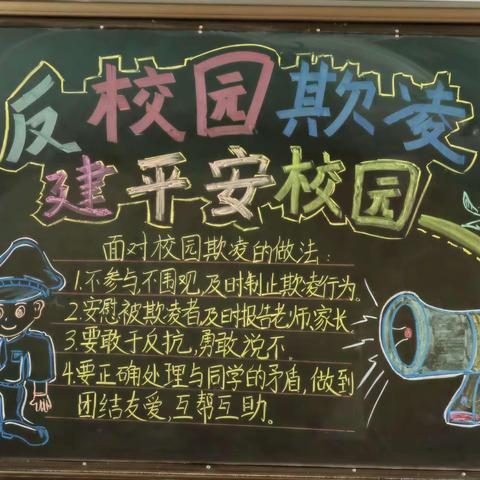 反校园欺凌
建平安校园
面对校园欺凌的做法：
1.不参与,不围观,及时制止欺凌行为。
2.安慰被欺凌者及时报告老师、家长
3.要敢于反抗,勇敢说不
4.要正确处理与同学的矛盾,做到
团结友爱,互帮互助。